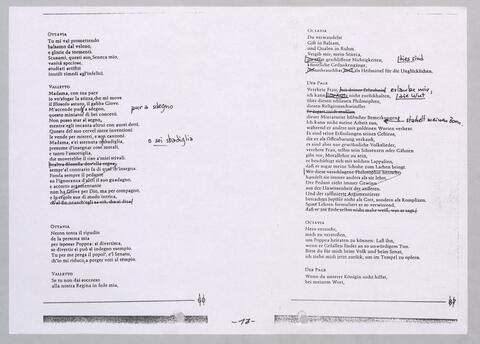 OTTAVIA
Tu mi vai promettendo
balsamo dal veleno,
e glorie da tormenti.
Scusami, questi son, Seneca mio,
vanità speciose,
studiati artifici
inutili rimedi agl'infelici.
VALLETTO
Madama, con tua pace
io vo'sfogar la stizza, che mi move
il filosofo astuto, il gabba Giove.
M'accende pure a sdegno,
questo miniator di bei concetti.
Non posso star al segno,
mentre egli incanta altrui con aurei detti.
Queste del suo cervel mere invenzioni
le vende per misteri, e son canzoni.
Madama, s'ei sternuta
presume d'insegnar cose morali,
e tanto l'ammiriglia,
che moverebbe il riso a'miei stivali.
sempr'al contrario fa di quel ch'insegna.
Fonda sempre il pedante
su l'ignoranza d'altri il suo guadagno,
e accorto argomentatore
non ha Giove per Dio, ma per compagno,
OTTAVIA
Neron tenta il ripudio
de la persona mia
per isposar Poppea: si divertisca,
se divertir si può sì indegno esempio.
Tu per me prega il popol', e'l Senato,
ch'io mi riduco a porger voti al tempio.
VALLETTO
Se tu non dai soccorso
alla nostra Regina in fede mia,
pur a sdegno
o sei sbadiglia
OCTAVIA
Du verwandelst
Gift in Balsam,
und Qualen in Ruhm.
Vergib mir, mein Seneca,
geschliffene Nichtigkeiten,
künstliche Gedankengänge,
unbrauchbar als Heilmittel für die Unglücklichen.
dies sind
DER PAGE
Verehrte Frau,
ich kann nicht zurückhalten,
über diesen schlauen Philosophen,
diesen Religionsschwindler.
Dieser Miniaturist hübscher Bemerkungen
Ich kann nicht meine Arbeit tun,
während er andere mit goldenen Worten verhext.
Es sind reine Erfindungen seines Gehirns,
die er als Geheimnisse verkauft,
es sind aber nur gewöhnliche Volkslieder,
verehrte Frau, selbst sein Schneuzen oder Gähnen
gibt vor, Morallehre zu sein,
er beschäftigt sich mit solchen Lappalien,
daß er sogar meine Schuhe zum Lachen bringt.
Wie dieser verschlagene Philosophie betreibt,
handelt sie immer anders als sie lehrt.
Der Pedant zieht immer Gewinn
aus der Unwissenheit der anderen.
Und der raffinierte Argumentierer
betrachtet Jupiter nicht als Gott, sondern als Komplizen.
erlaube mir,
OCTAVIA
Nero versucht,
mich zu verstoßen,
um Poppea heiraten zu können: Laß ihn,
wenn er Gefallen findet an so unwürdigem Tun.
Bitte du für mich beim Volk und beim Senat,
ich ziehe mich jetzt zurück, um im Tempel zu opfern.
DER PAGE
Wenn du unserer Königin nicht hilfst,
bei meinem Wort,
-13-